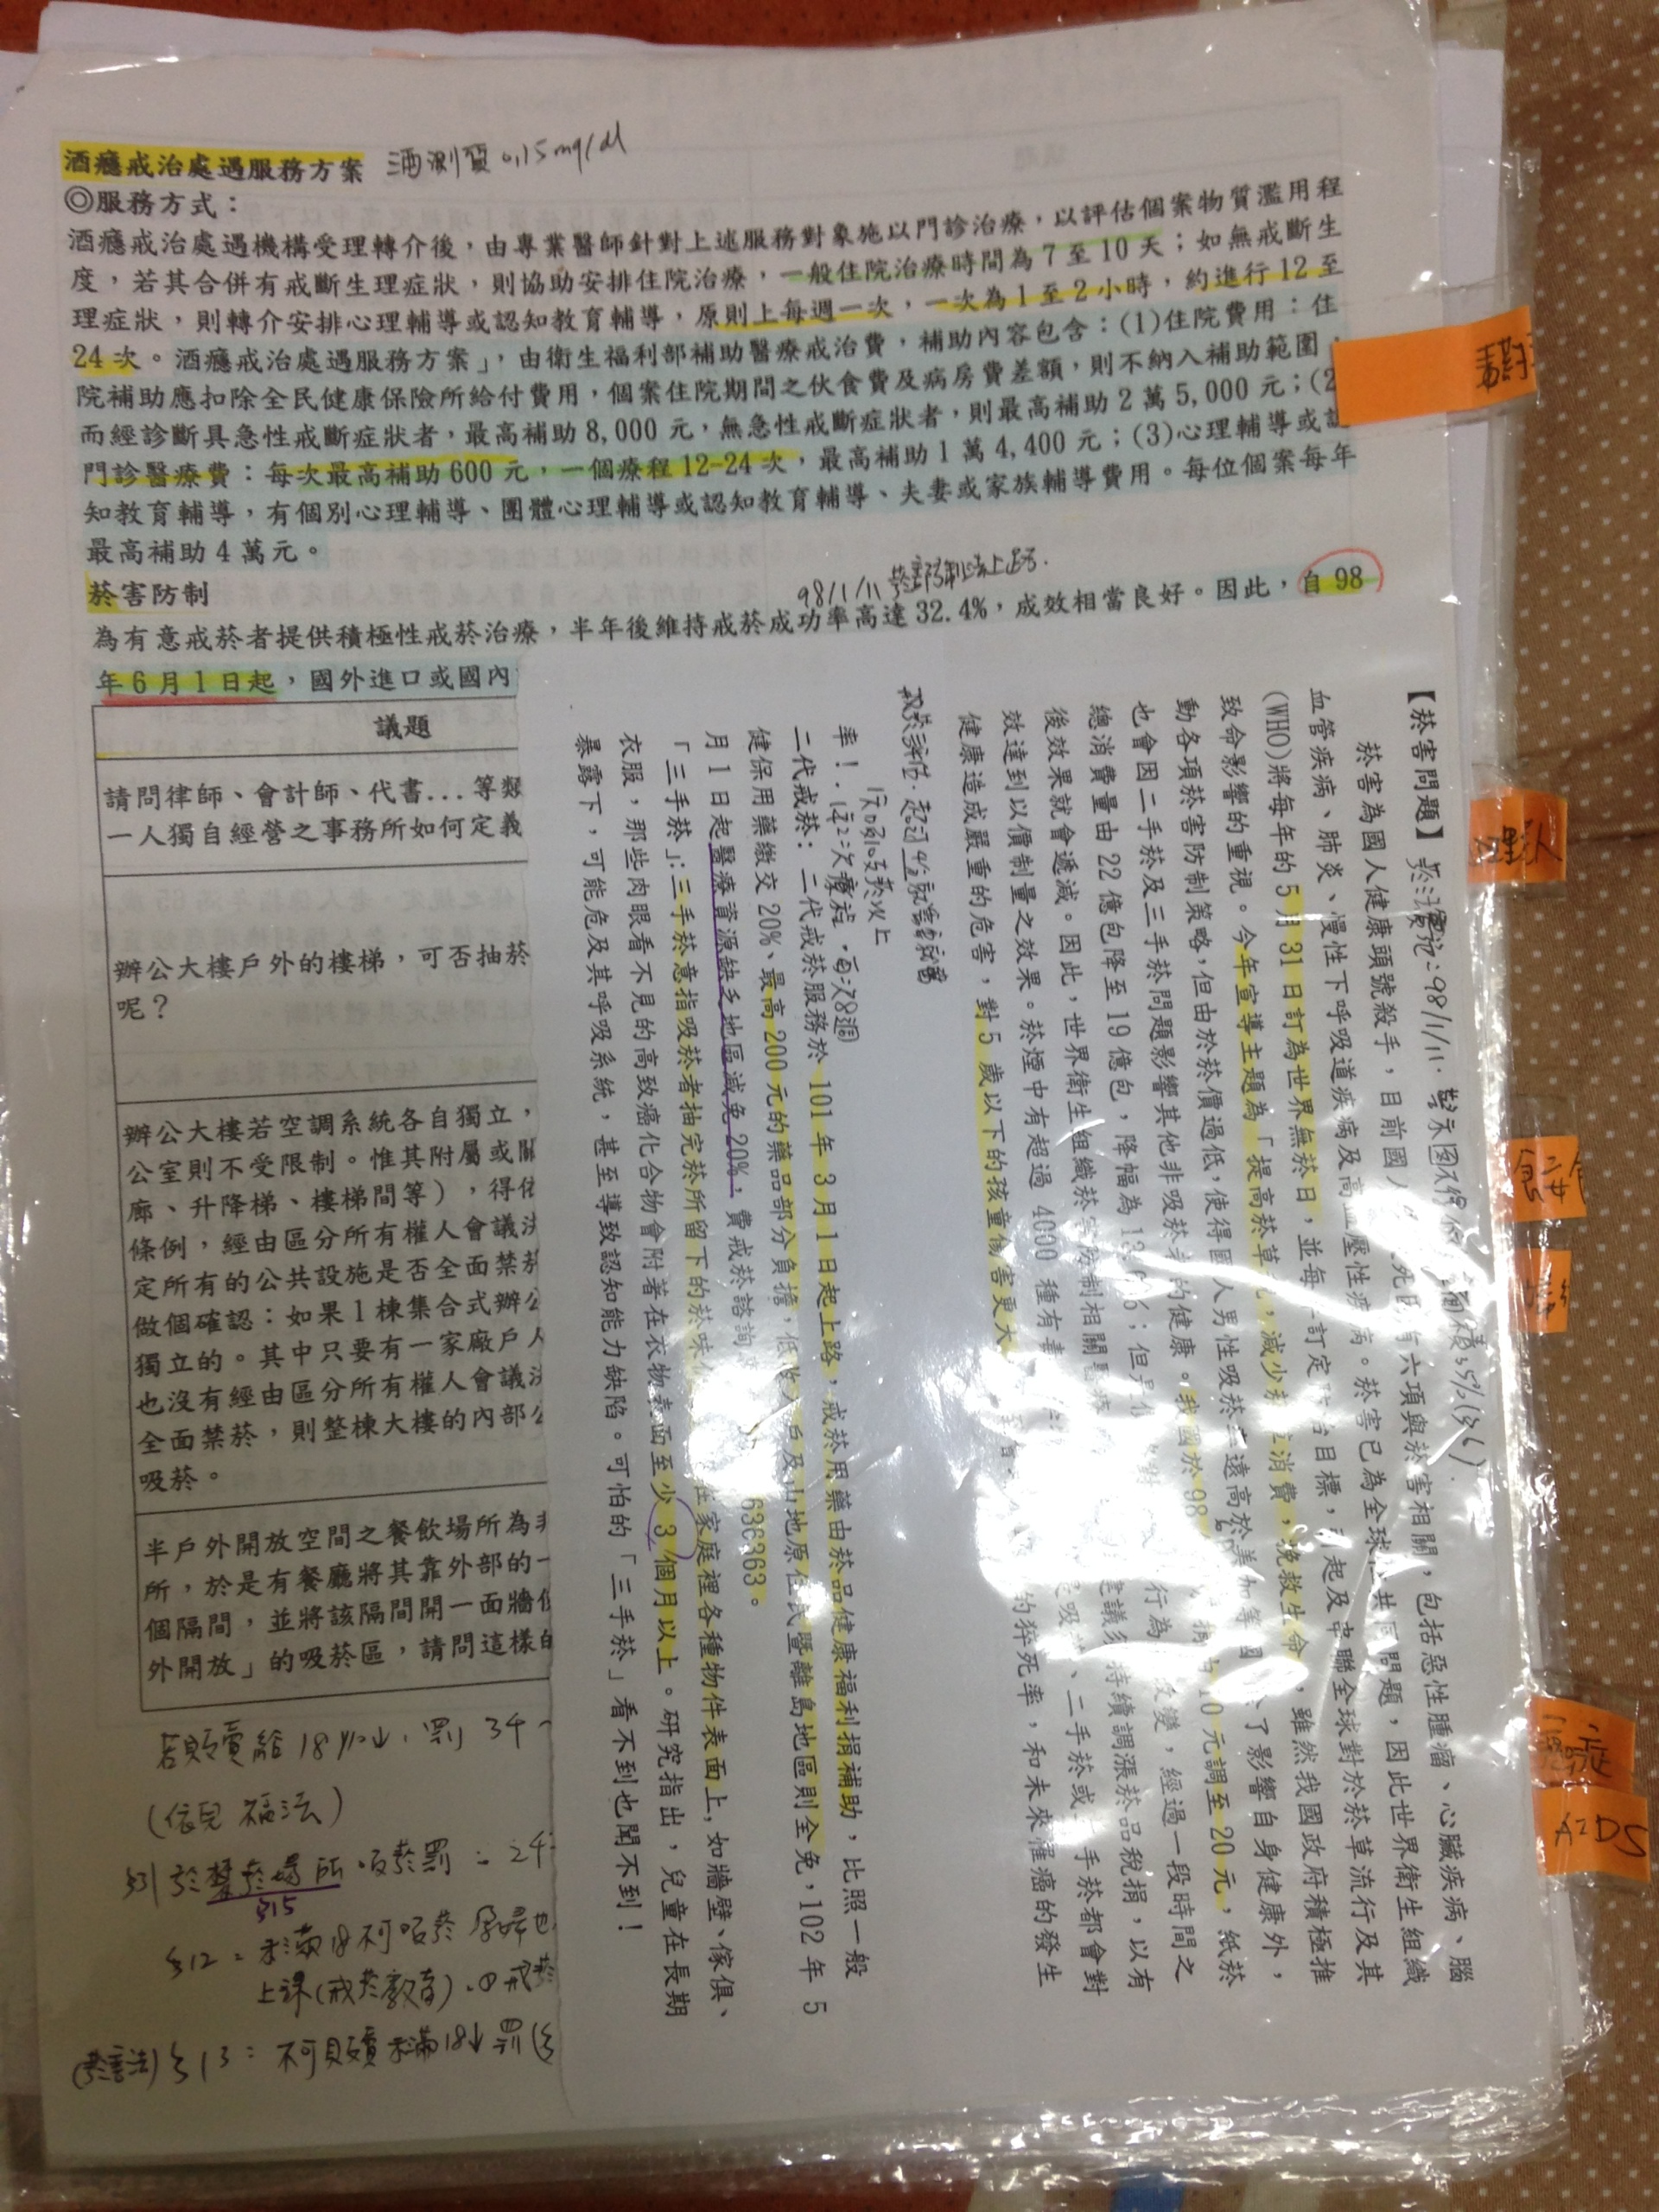 酒癮戒治處遇服務方案 酒測值0.15mg/dl
◎服務方式：
酒癮戒治處遇機構受理轉介後，由專業醫師針對上述服務對象施以門診治療，以評估個案物質濫用程
度，若其合併有戒斷生理症狀，則協助安排住院治療，一般住院治療時間為7至10天；如無戒斷生
理症狀，則轉介安排心理輔導或認知教育輔導，原則上每週一次，一次為1至2小時，約進行12至
24次。酒癮戒治處遇服務方案」，由衛生福利部補助醫療戒治費，補助內容包含：(1)住院費用：住
院補助應扣除全民健康保險所給付費用，個案住院期間之伙食費及病房費差額，則不納入補助範圍，
而經診斷具急性戒斷症狀者，最高補助8,000元，無急性戒斷症狀者，則最高補助2萬5,000元；(2
門診醫療費：每次最高補助600元，一個療程12-24次，最高補助1萬4,400元；(3)心理輔導或認
知教育輔導，有個別心理輔導、團體心理輔導或認知教育輔導、夫妻或家族輔導費用。每位個案每年
最高補助4萬元。
菸害防制 98/1/11菸害防制法上路.
為有意戒菸者提供積極性戒菸治療，半年後維持戒菸成功率高達32.4%，成效相當良好。因此，自98
年6月1日起，國外進口或國內
議題
請問律師、會計師、代書...等類
一人獨自經營之事務所如何定義
辦公大樓戶外的樓梯，可否抽菸
呢？
辦公大樓若空調系統各自獨立，
公室則不受限制。惟其附屬或關
廊、升降梯、樓梯間等），得依
條例，經由區分所有權人會議決
定所有的公共設施是否全面禁菸
做個確認：如果1棟集合式辦公
獨立的。其中只要有一家廠戶人
也沒有經由區分所有權人會議決
全面禁菸，則整棟大樓的內部公
吸菸。
半戶外開放空間之餐飲場所為非
所，於是有餐廳將其靠外部的一
個隔間，並將該隔間開一面牆但
外開放」的吸菸區，請問這樣的
若販賣給18以下，罰3千~
(依兒福法)
§31於禁菸場所吸菸罰：2千
§15
§12：未滿18不可吸菸 孕婦也
上課(戒菸教育)
(菸害法)§13：不可販賣未滿18↓罰(
【菸害問題】 98/1/11. 警示圖 35%
菸害為國人健康頭號殺手，目前國人 死因有六項與菸害相關，包括惡性腫瘤、心臟疾病、腦
血管疾病、肺炎、慢性下呼吸道疾病及高血壓性疾病。菸害已為全球 共同問題，因此世界衛生組織
(WHO)將每年的5月31日訂為世界無菸日，並每年訂定防治目標，引起及串聯全球對於菸草流行及其
致命影響的重視。今年宣導主題為「提高菸草 ，減少菸 消費，挽救生命 ，雖然我國政府積極推
動各項菸害防制策略，但由於菸價過低，使得國人男性吸菸率遠高於美加等國 了影響自身健康外，
也會因二手菸及三手菸問題影響其他非吸菸者的健康。我國於98 捐由10元調至20元，紙菸
總消費量由22億包降至19億包，降幅為 ；但 行為 改變，經過一段時間之
後效果就會遞減。因此，世界衛生組織菸害防制相關 建議須持續調漲菸品稅捐，以有
效達到以價制量之效果。菸煙中有超過4000種有毒 吸菸、二手菸或三手菸都會對
健康造成嚴重的危害，對5歲以下的孩童傷害更大 的猝死率，和未來罹癌的發生
率！ 2次療程，每次8週
二代戒菸：二代戒菸服務於101年3月1日起上路，戒菸用藥由菸品健康福利捐補助，比照一般
健保用藥繳交20%、最高200元的藥品部分負擔，低收入戶及山地原住民暨離島地區則全免，102年5
月1日起醫療資源缺乏地區減免20%，費戒菸諮詢 636363。
「三手菸」：三手菸意指吸菸者抽完菸所留下的菸味 在家庭裡各種物件表面上，如牆壁、傢俱、
衣服，那些肉眼看不見的高致癌化合物會附著在衣物表面至少3個月以上。研究指出，兒童在長期
暴露下，可能危及其呼吸系統，甚至導致認知能力缺陷。可怕的「三手菸」看不到也聞不到！
AIDS